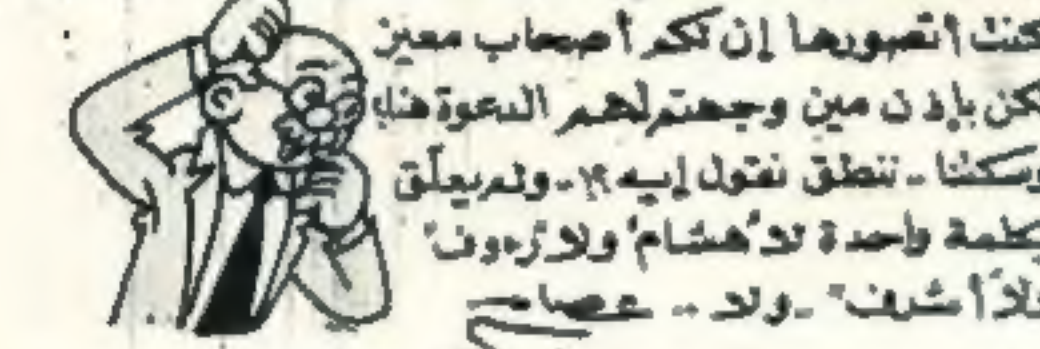 كنت أتصورها إن لكم أصحاب معين
لكن بإذن مين وجهتم لهم الدعوة هنا
وسكتنا - ننطق نقول إيه ؟! - ولم يعلّق
بكلمة واحدة لا "هشام" ولا
ولا "أشرف" - ولا .. عصام